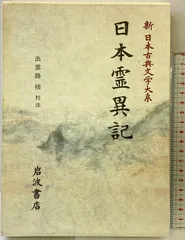 新 日本古典文学大系
日本霊異記
出雲路 修 校注
岩波書店